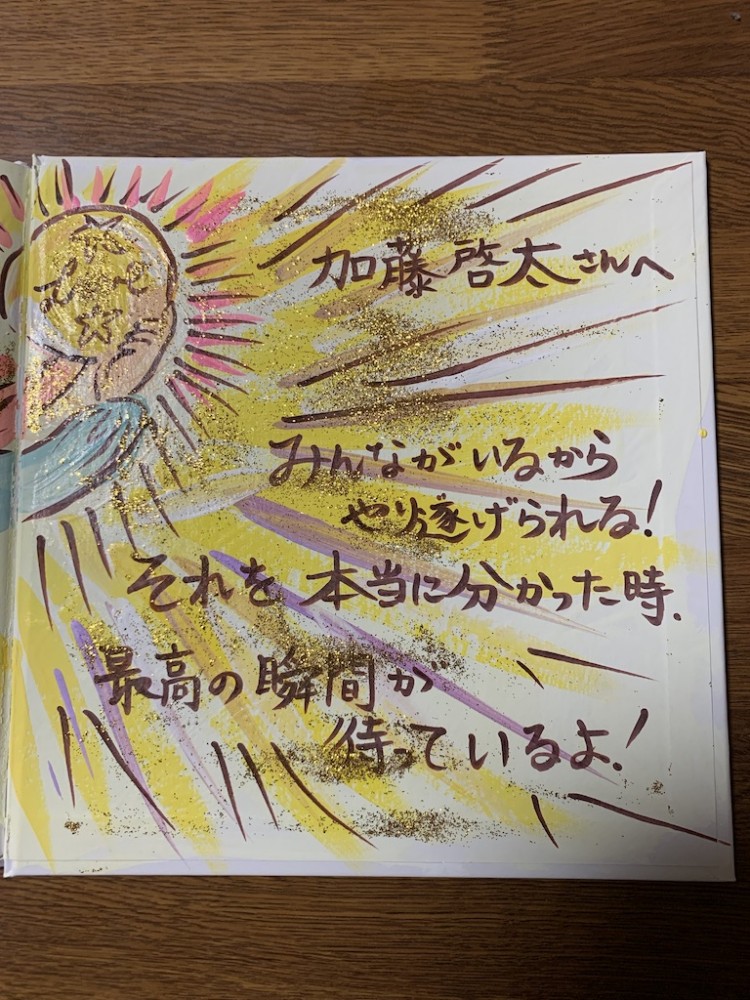 加藤啓太さんへ
みんながいるから
やり遂げられる!
それを本当に分かった時.
最高の瞬間が
待っているよ!